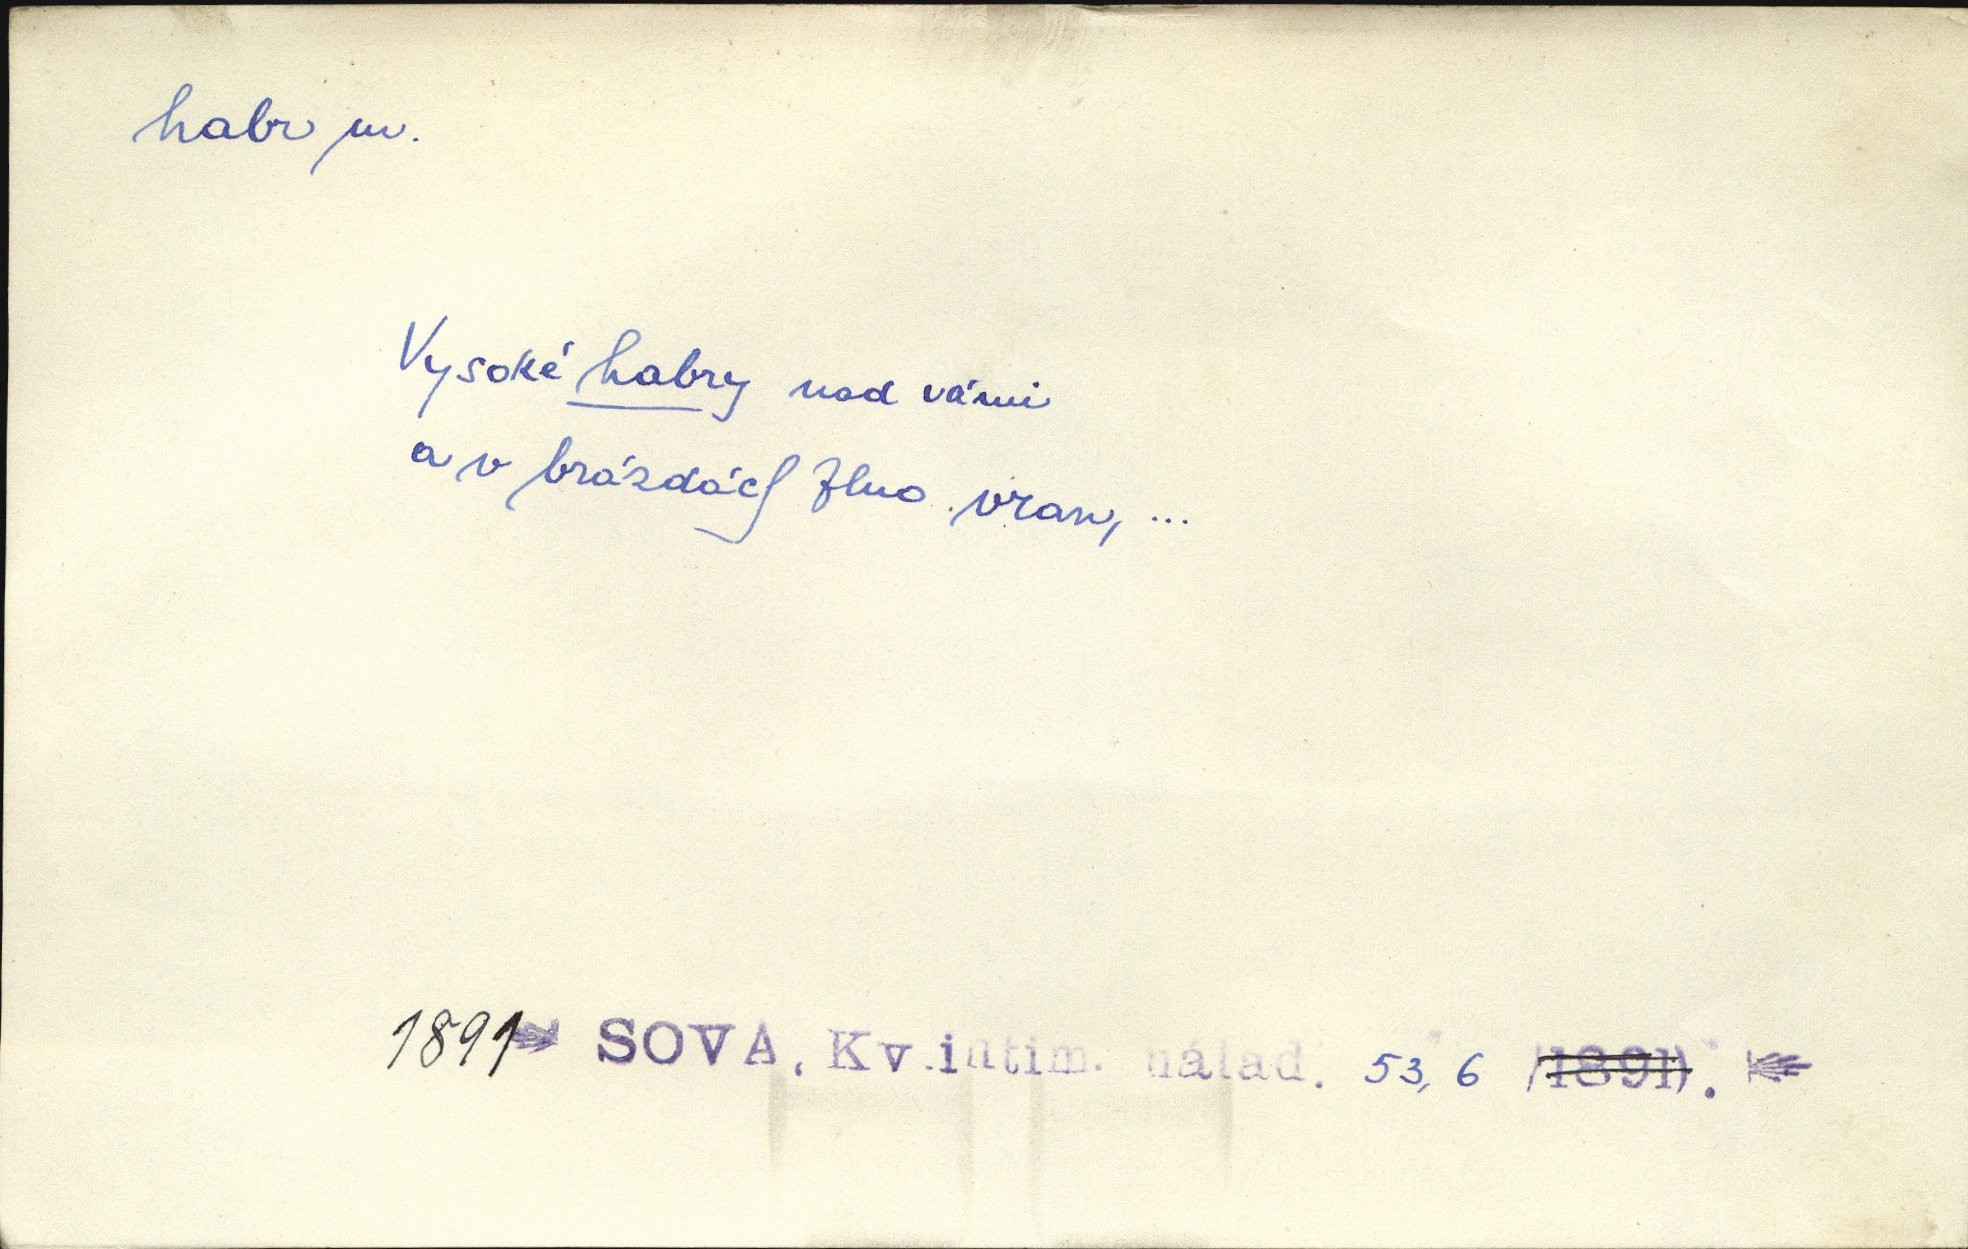 habr m.
Vysoké habry nad vámi
a v brázdách tlum vran, ...
1891 SOVA, Kv. intim. nálad. 53, 6 (1891).